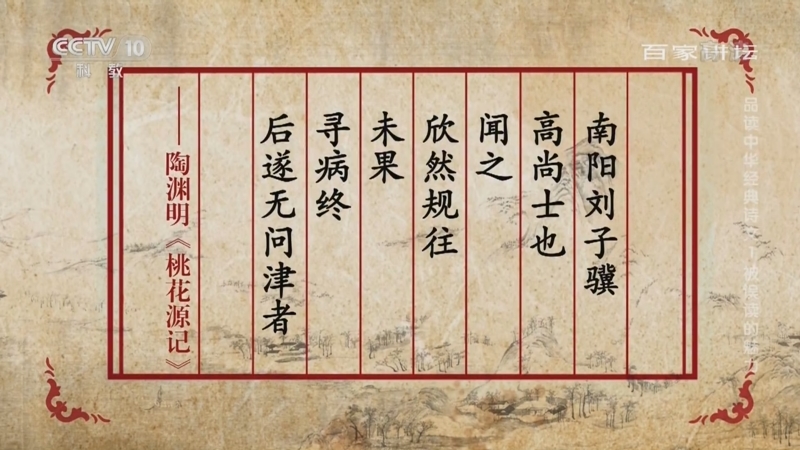 CCTV 10
科教
百家讲坛
南阳刘子骥
高尚士也
闻之
欣然规往
未果
寻病终
后遂无问津者
——陶渊明《桃花源记》
品读中华经典诗文